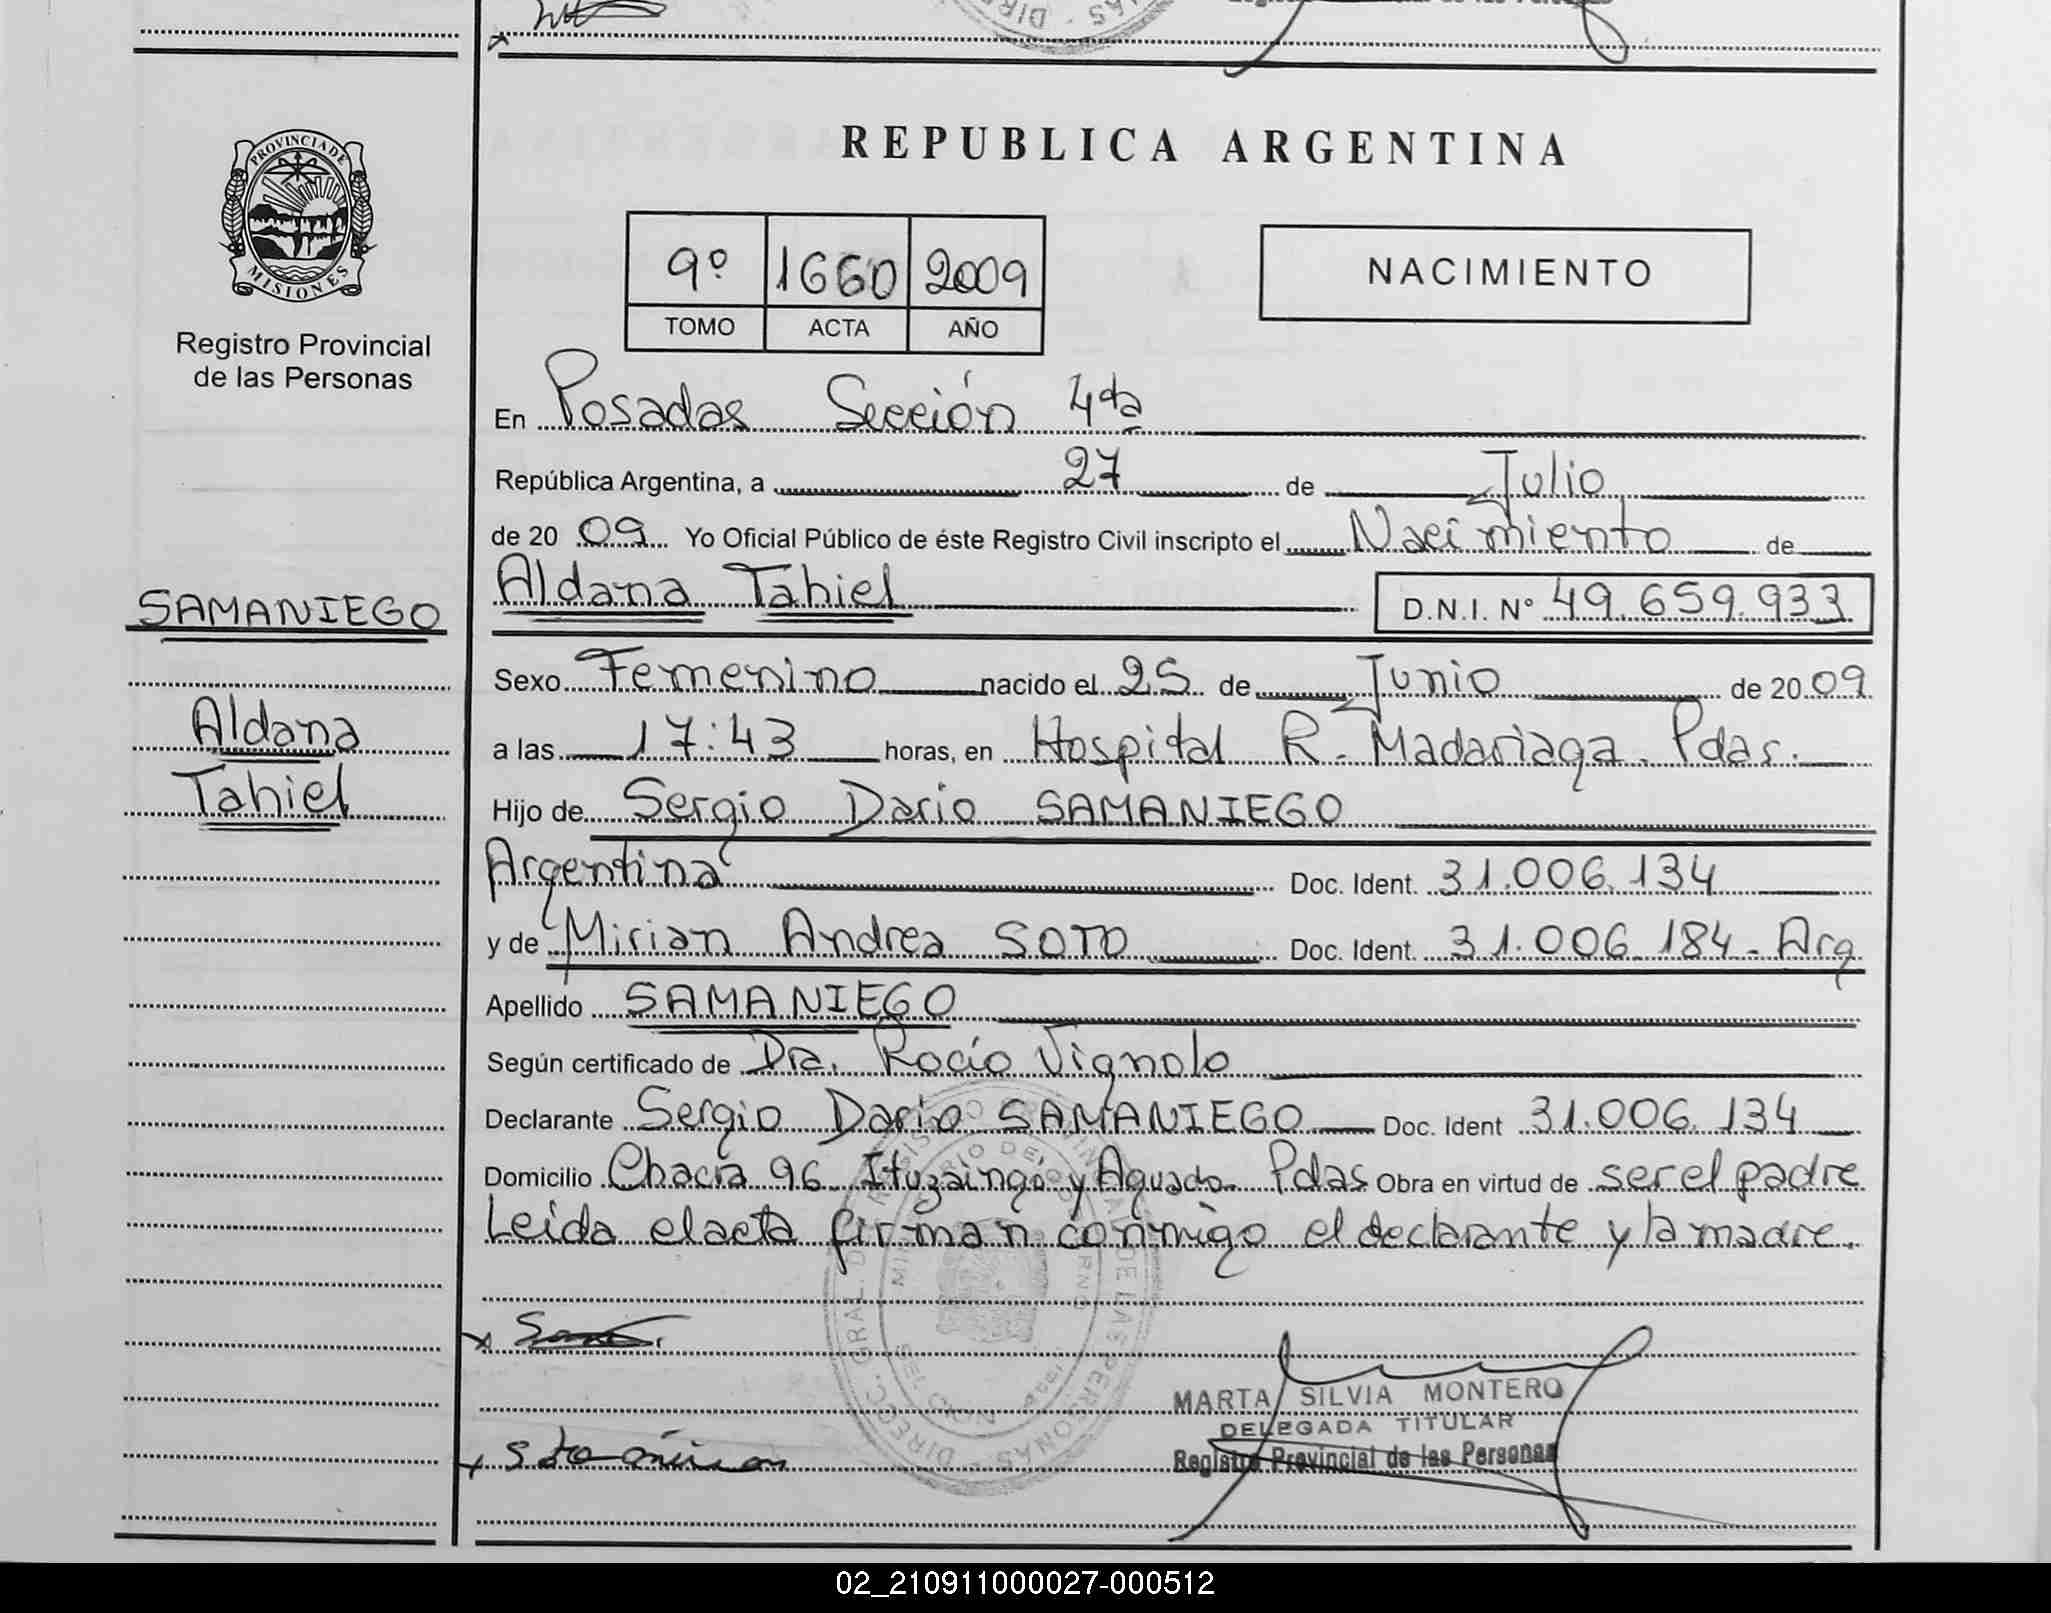 REPUBLICA ARGENTINA
PROVINCIA DE
MISIONES
Registro Provincial
de las Personas
9º 1660 2009
TOMO ACTA AÑO
NACIMIENTO
En Posadas Sección 4ta
República Argentina, a 27 de Julio
de 20 09 Yo Oficial Público de éste Registro Civil inscripto el Nacimiento de
Aldana Tahiel D.N.I. Nº 49.659.933
SAMANIEGO
Aldana
Tahiel
Sexo Femenino nacido el 25 de Junio de 20 09
a las 17:43 horas, en Hospital R. Madariaga. Pdas.
Hijo de Sergio Dario SAMANIEGO
Argentina Doc. Ident. 31.006.134
y de Mirian Andrea SOTO Doc. Ident. 31.006.184 - Arg
Apellido SAMANIEGO
Según certificado de Dra. Rocío Vignolo
Declarante Sergio Dario SAMANIEGO Doc. Ident 31.006.134
Domicilio Chacra 96 Ituzaingo y Aguado. Pdas Obra en virtud de ser el padre
Leida el acta firman conmigo el declarante y la madre.
MARTA SILVIA MONTERO
DELEGADA TITULAR
Registro Provincial de las Personas
02_210911000027-000512